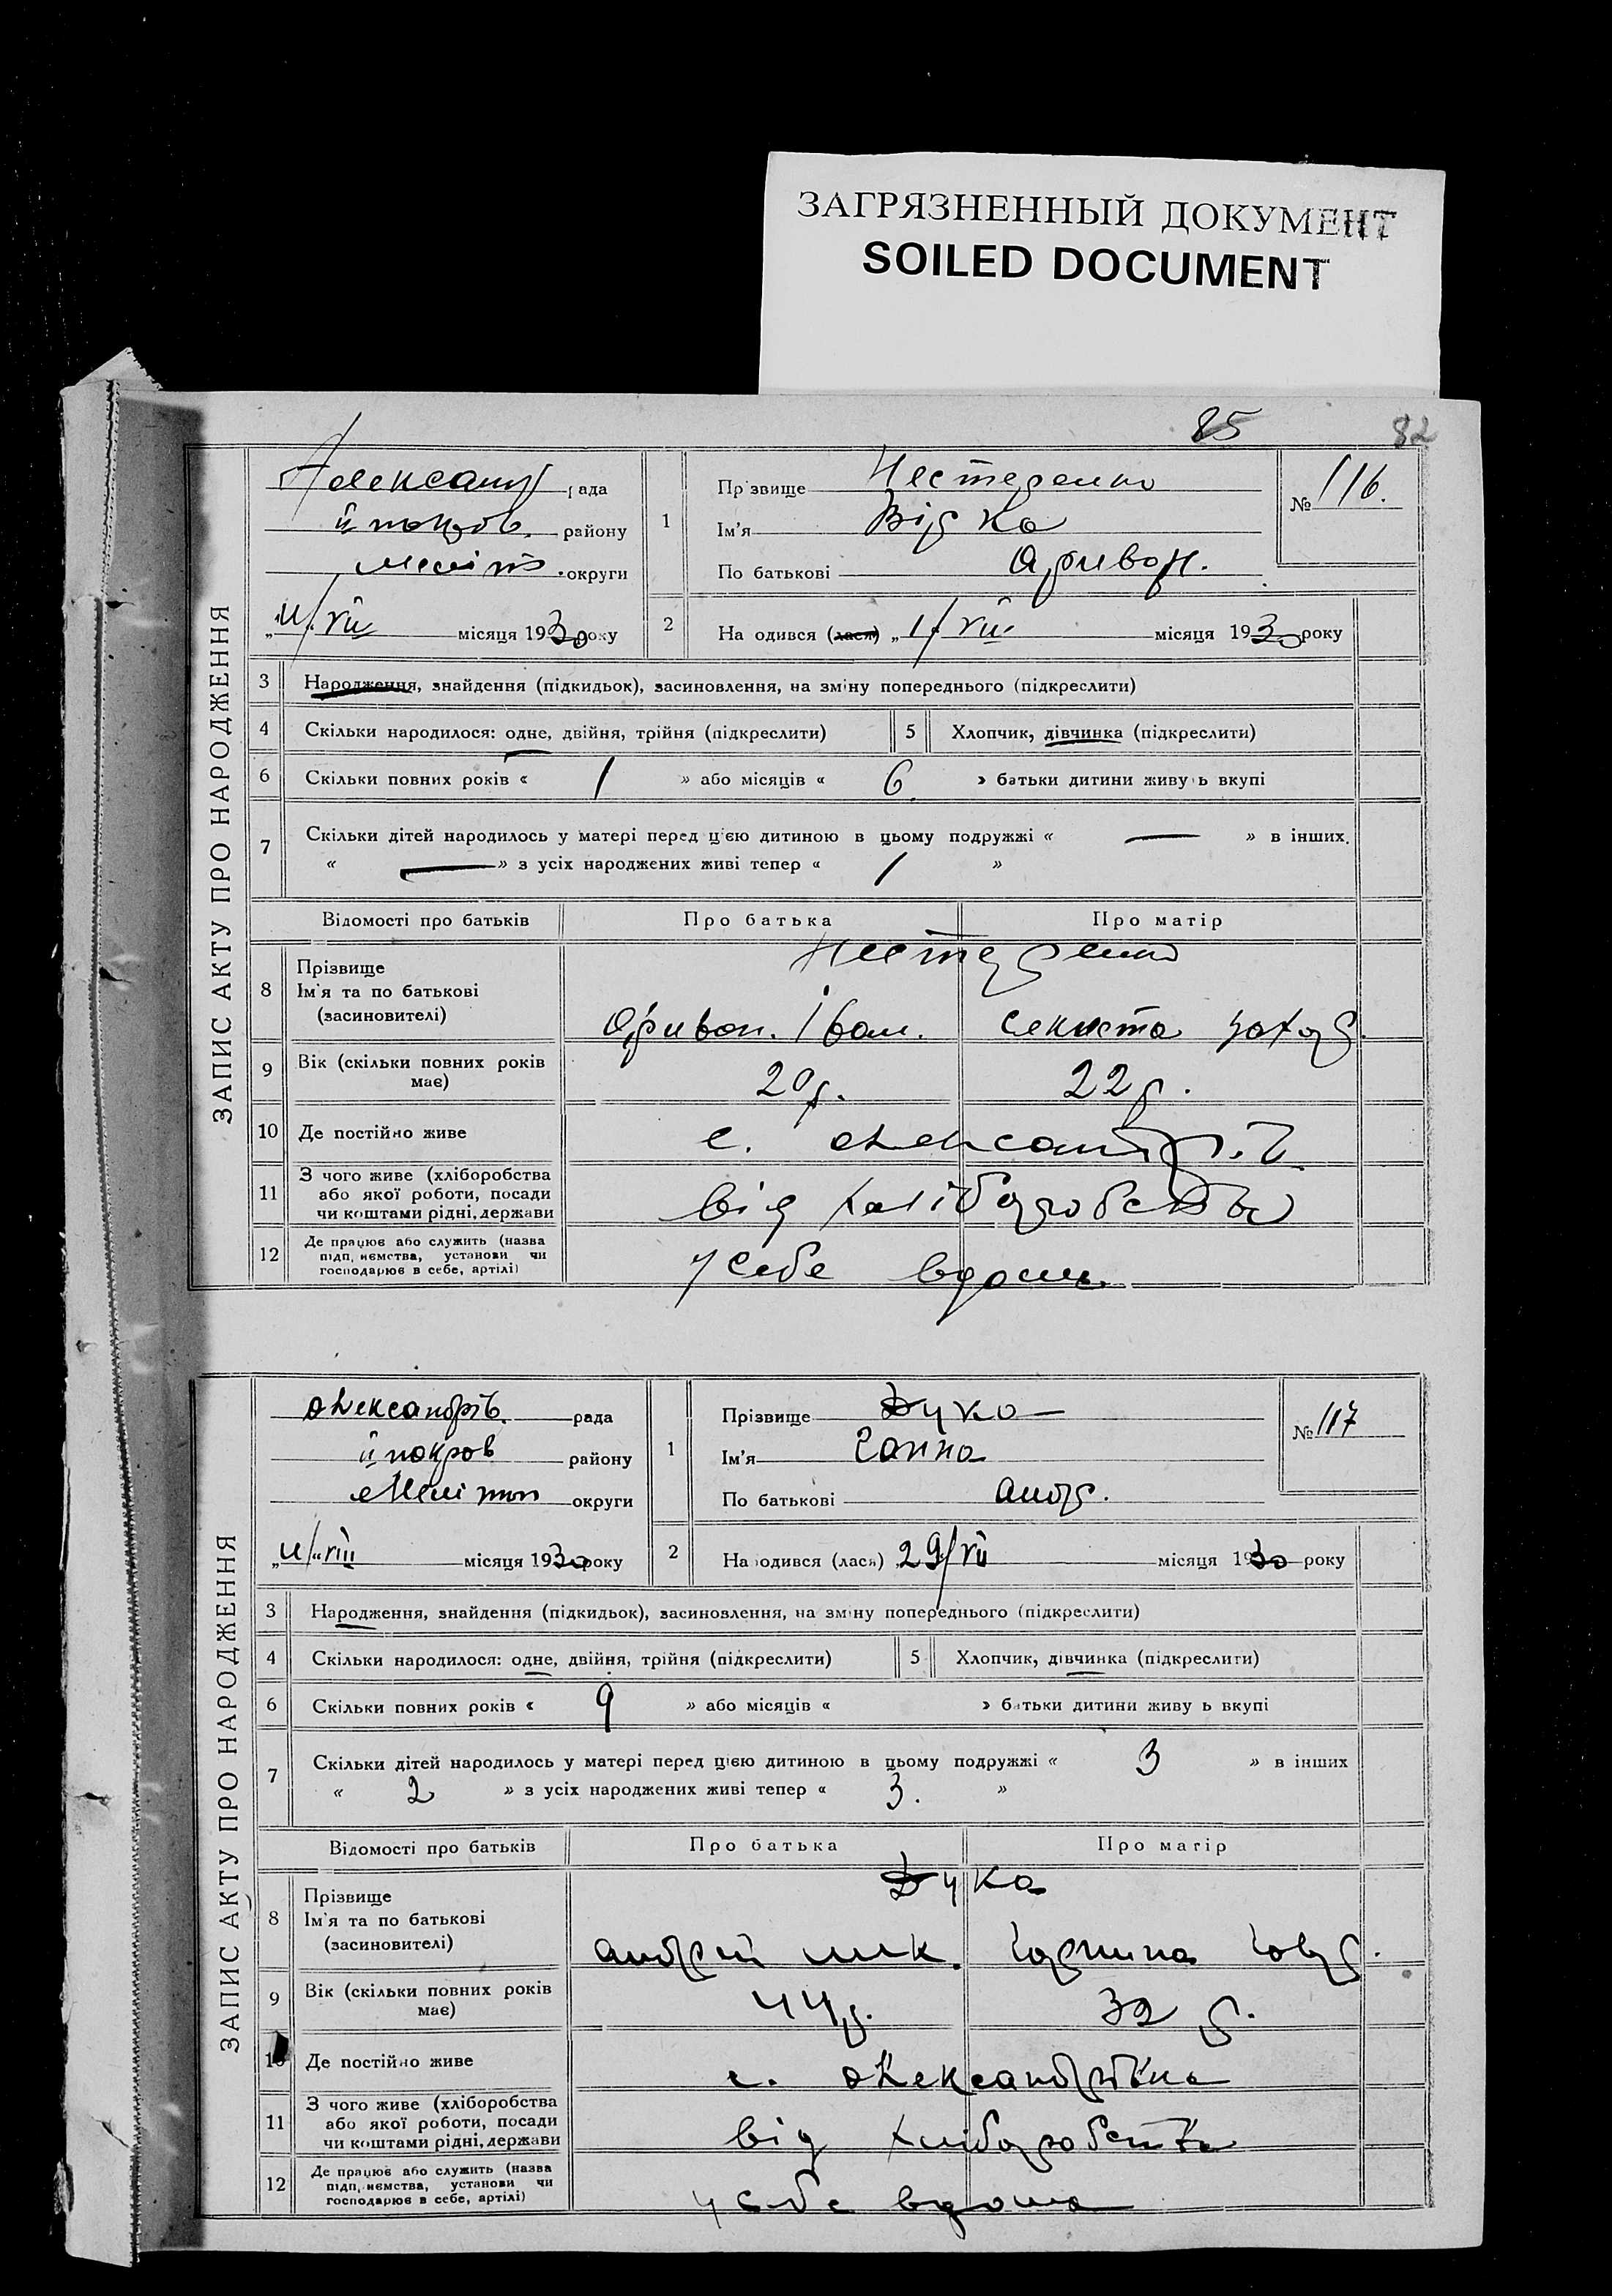 ЗАГРЯЗНЕННЫЙ ДОКУМЕНТ
SOILED DOCUMENT
85 82
ЗАПИС АКТУ ПРО НАРОДЖЕННЯ
Александр рада
району
Меліт. округи
„11/VII місяця 1930 року
1
Прізвище Нестеренко
Ім'я Відка
По батькові
№ 116.
2
На одився (лася) „1/VII місяця 1930 року
3 Народження, знайдення (підкидьок), засиновлення, на зміну попереднього (підкреслити)
4 Скільки народилося: одне, двійня, трійня (підкреслити) 5 Хлопчик, дівчинка (підкреслити)
6 Скільки повних років « 1 » або місяців « 6 » батьки дитини живуь вкупі
7 Скільки дітей народилось у матері перед цією дитиною в цьому подружжі « — » в інших.
« — » з усіх народжених живі тепер « 1 »
Відомості про батьків Про батька Про матір
8 Прізвище
Ім'я та по батькові
(засновителі)
Нестеренко
Іван.
9 Вік (скільки повних років має) 20р. 22р.
10 Де постійно живе с.
11 З чого живе (хліборобства
або якої роботи, посади
чи коштами рідні, держави
від хліборобства
12 Де працює або служить (назва
підп, иємства, установи чи
господарює в себе, артілі)
у себе вдома
ЗАПИС АКТУ ПРО НАРОДЖЕННЯ
Александрів. рада
й покров району
Мелітоп округи
„11/VIII місяця 1930 року
1
Прізвище Дука
Ім'я Ганна
По батькові Андр.
№ 117
2
На одився (лася) 29/VII місяця 1930 року
3 Народження, знайдення (підкидьок), засиновлення, на зміну попереднього (підкреслити)
4 Скільки народилося: одне, двійня, трійня (підкреслити) 5 Хлопчик, дівчинка (підкреслити)
6 Скільки повних років « 9 » або місяців « » батьки дитини живу ь вкупі
7 Скільки дітей народилось у матері перед цією дитиною в цьому подружжі « 3 » в інших
« 2 » з усіх народжених живі тепер « 3. »
Відомості про батьків Про батька Про матір
8 Прізвище
Ім'я та по батькові
(засиновителі)
Дука
Андрій мик.
9 Вік (скільки повних років має) 44р. 32 р.
10 Де постійно живе с. Александрівка
11 З чого живе (хліборобства
або якої роботи, посади
чи коштами рідні, держави
від хліборобства
12 Де працює або служить (назва
підп, иємства, установи чи
господарює в себе, артілі)
у себе вдома